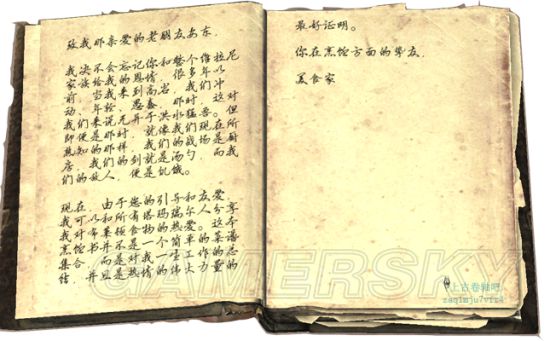 致我那亲爱的老朋友安东,
我决不会忘记你和整个维拉尼
家族给我的恩情，很多年以
前，当我来到高岩，我们冲
动、年轻、愚蠢，那时，这对
我们来说无异于洪水猛兽。但
即使是那时，就像我们现在所
熟知的那样，我们的战场是厨
房，我们的到就是汤勺，而我
们的敌人，便是饥饿。
现在，由于您的引导和友爱，
我可以和所有塔玛瑞尔人分享
我对布莱顿食物的热爱。这本
烹饪书并不是一个简单的菜谱
集合，而是对我一生工作的总
结，并且是热情的伟大力量的
最好证明。
你在烹饪方面的学友，
美食家
GAMERSKY
上古卷轴吧
zaqimju7vfr4